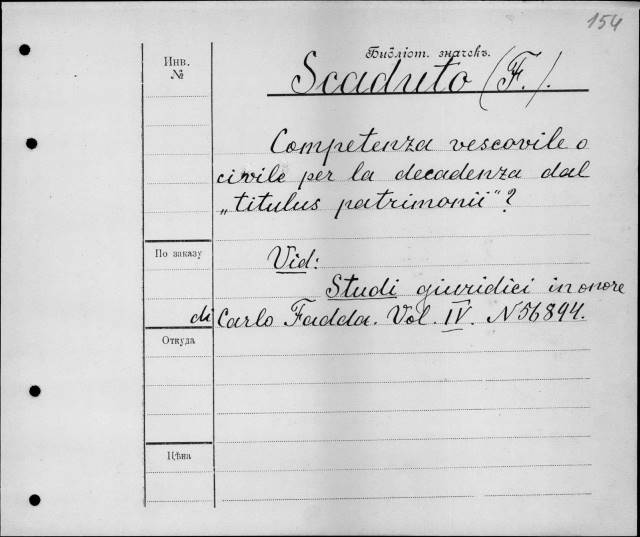 154
Инв.
№
Библіот. значекъ.
Scaduto (F.).
Competenza vescovile o
civile per la decadenza dal
„titulus patrimonii“?
По заказу
Vid:
Studi giuridici in onore
di Carlo Fadda. Vol. IV. N 56894.
Откуда
Цѣна